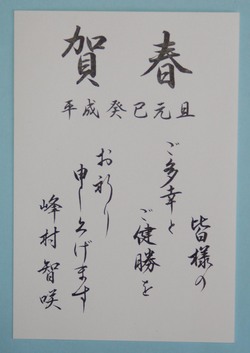 賀春
平成癸巳元旦
皆様の
ご多幸と
ご健勝を
お祈り
申し上げます
峰村智咲